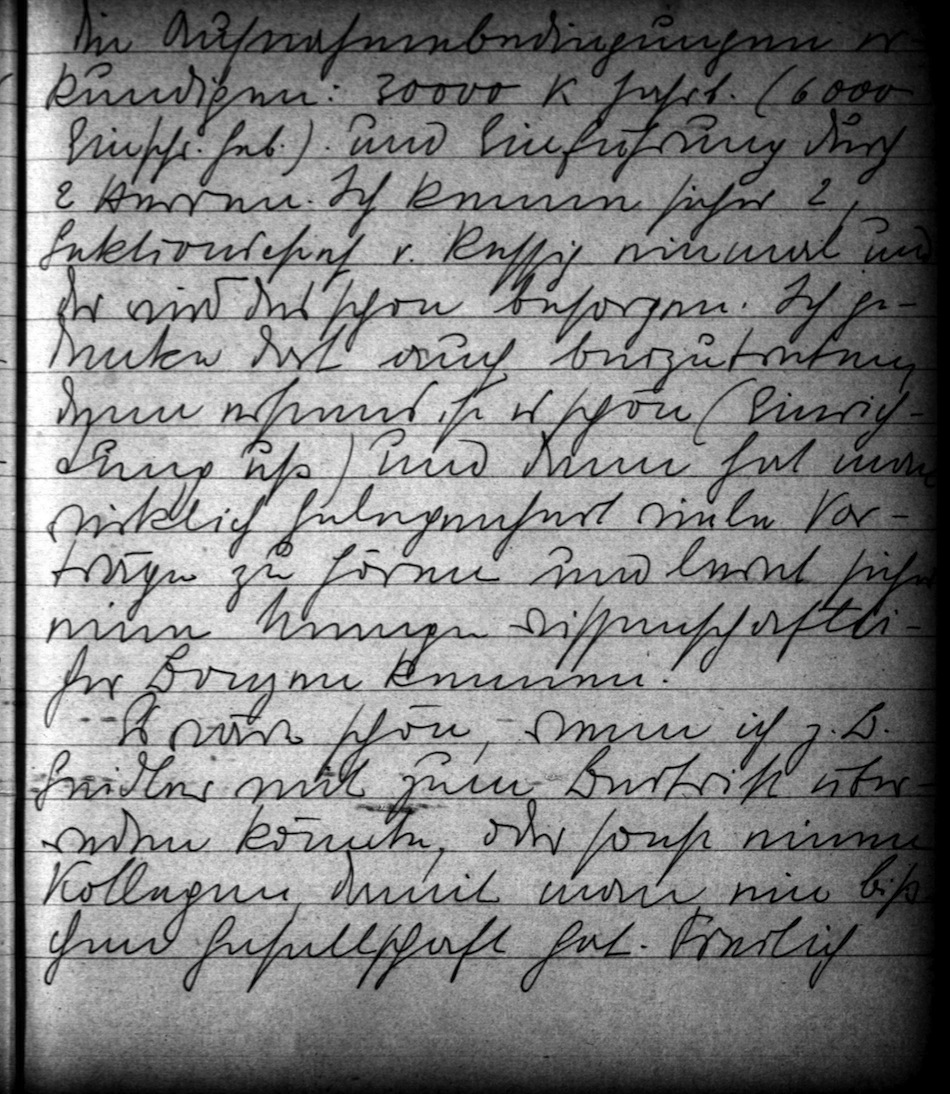 die Aufnahmebedingungen er-
kundigen: 30000 K Jahrb. (6000
Einschr. Geb.). und Einführung durch
2 Herren. Ich kenne sicher 2,
Sektionschef v. einmal und
der wird das schon besorgen. Ich ge-
denke dort auch beizutreten,
denn erstens ist es schön (Einrich-
tung usf) und dann hat man
wirklich Gelegenheit viele Vor-
träge zu hören und lernt sicher
eine Menge wissenschaftli-
cher kennen.
Es wäre schön, wenn ich z. B.
Seidler mit zum Beitritt über-
reden könnte, oder sonst einen
Kollegen, damit man ein biß-
chen Gesellschaft hat. Freilich